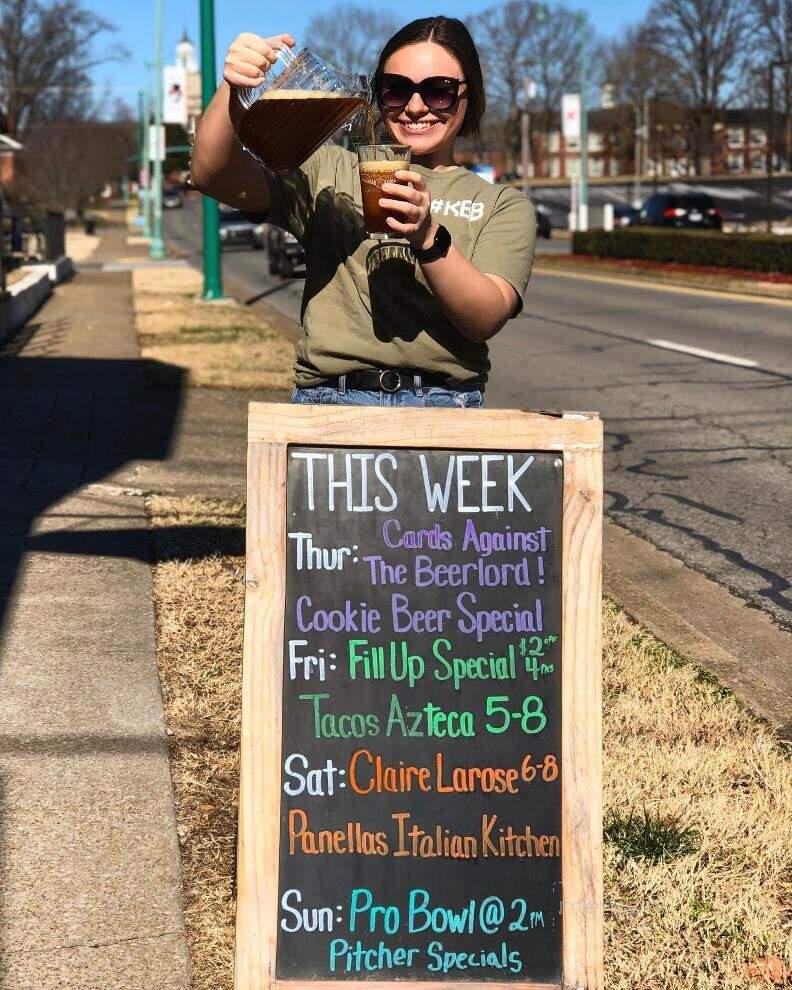 #KEB
THIS WEEK
Thur: Cards Against
The Beerlord!
Cookie Beer Special
Fri: Fill Up Special $2 off
4 pks
Tacos Azteca 5-8
Sat: Claire Larose 6-8
Panellas Italian Kitchen
Sun: Pro Bowl @ 2PM
Pitcher Specials